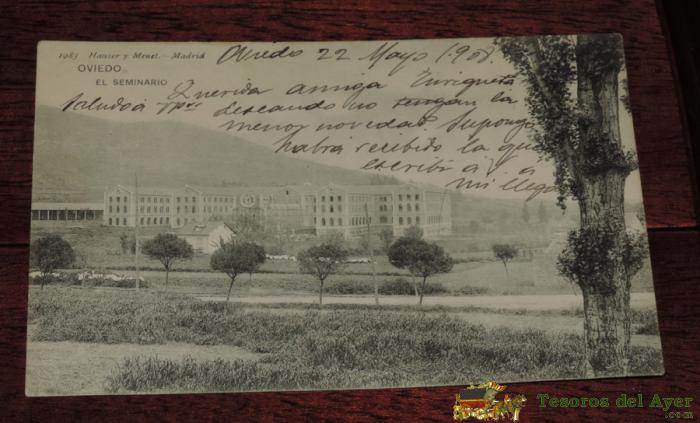 1985 Hauser y Menet.-Madrid
OVIEDO
EL SEMINARIO
Oviedo 22 Mayo 1908
Querida amiga Enriqueta
Saludo á
deseando no tengan la
menor novedad. Supongo
habrá recibido la que
escribí á V. á
mi llega
Tesoros del Ayer
.com